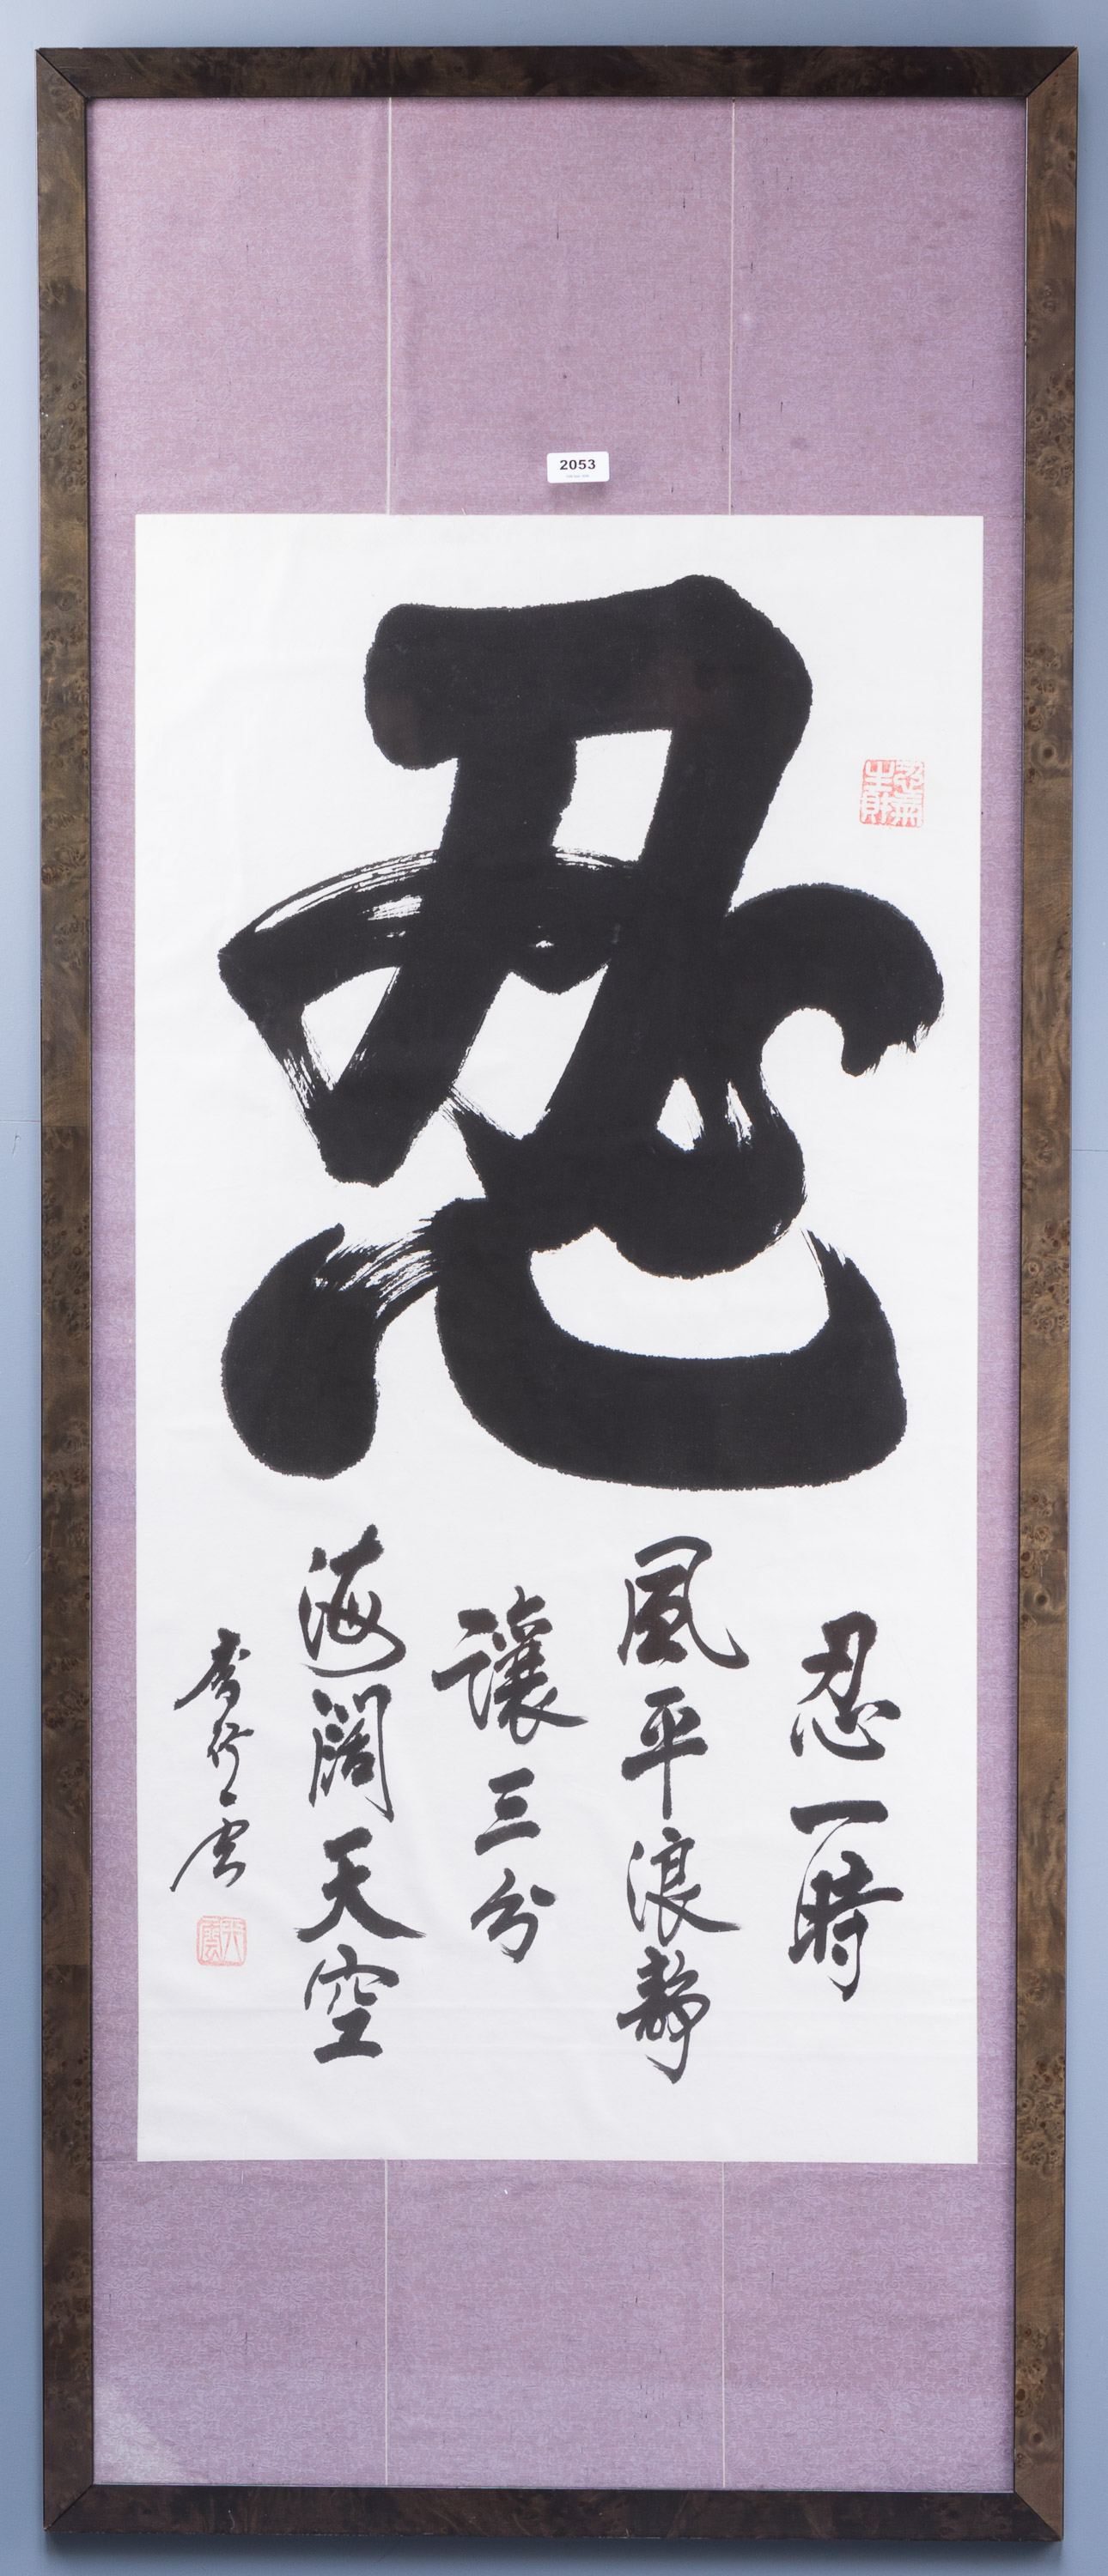 2053
忍
忍一時
風平浪静
讓三分
海闊天空